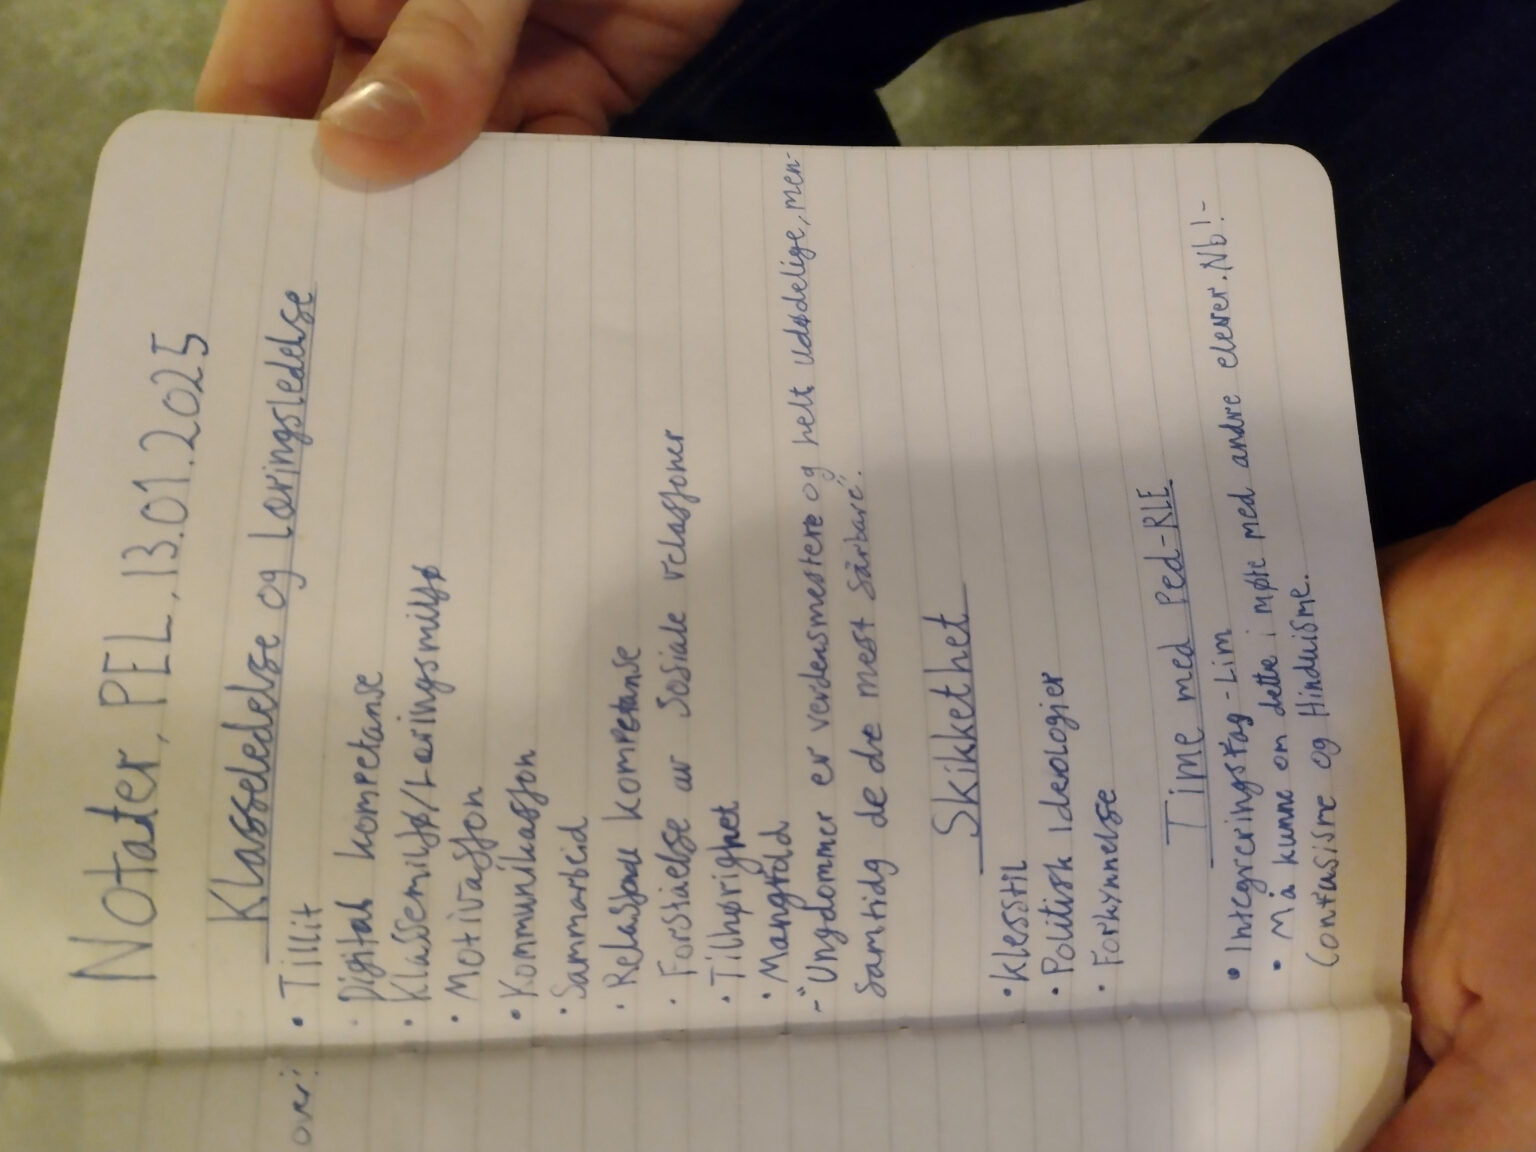 Notater, PEL, 13.01.2025
Klasseledelse og Læringsledelse
over:
• Tillit
• Digital kompetanse
• Klassemiljø/Læringsmiljø
• Motivasjon
• Kommunikasjon
• Sammarbeid
• Relasjons kompetanse
• Forståelse av Sosiale relasjoner
• Tilhørighet
• Mangfold
~"Ungdommer er verdensmestere og helt udødelige, men-
samtidg de de mest sårbare".
Skikkethet
• Klesstil
• Politisk Ideologier
• Forkynnelse
Time med Ped-RLE
• Integreringsfag - Lim
• Må kunne om dette i møte med andre elever. Nb! -
Confusisme og Hinduisme.